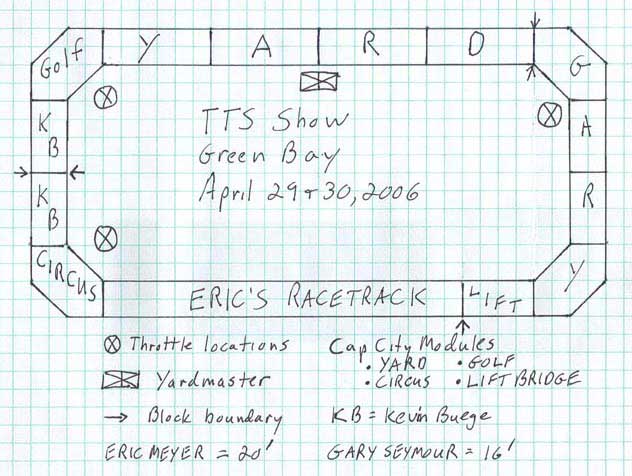 Golf Y A R D G
K B A
K B R
CIRCUS Y
TTS Show
Green Bay
April 29 + 30, 2006
ERIC'S RACETRACK LIFT
Throttle locations
Yardmaster
Block boundary
ERIC MEYER = 20'
Cap City Modules
• YARD • GOLF
• CIRCUS • LIFT BRIDGE
KB = Kevin Buege
GARY SEYMOUR = 16'